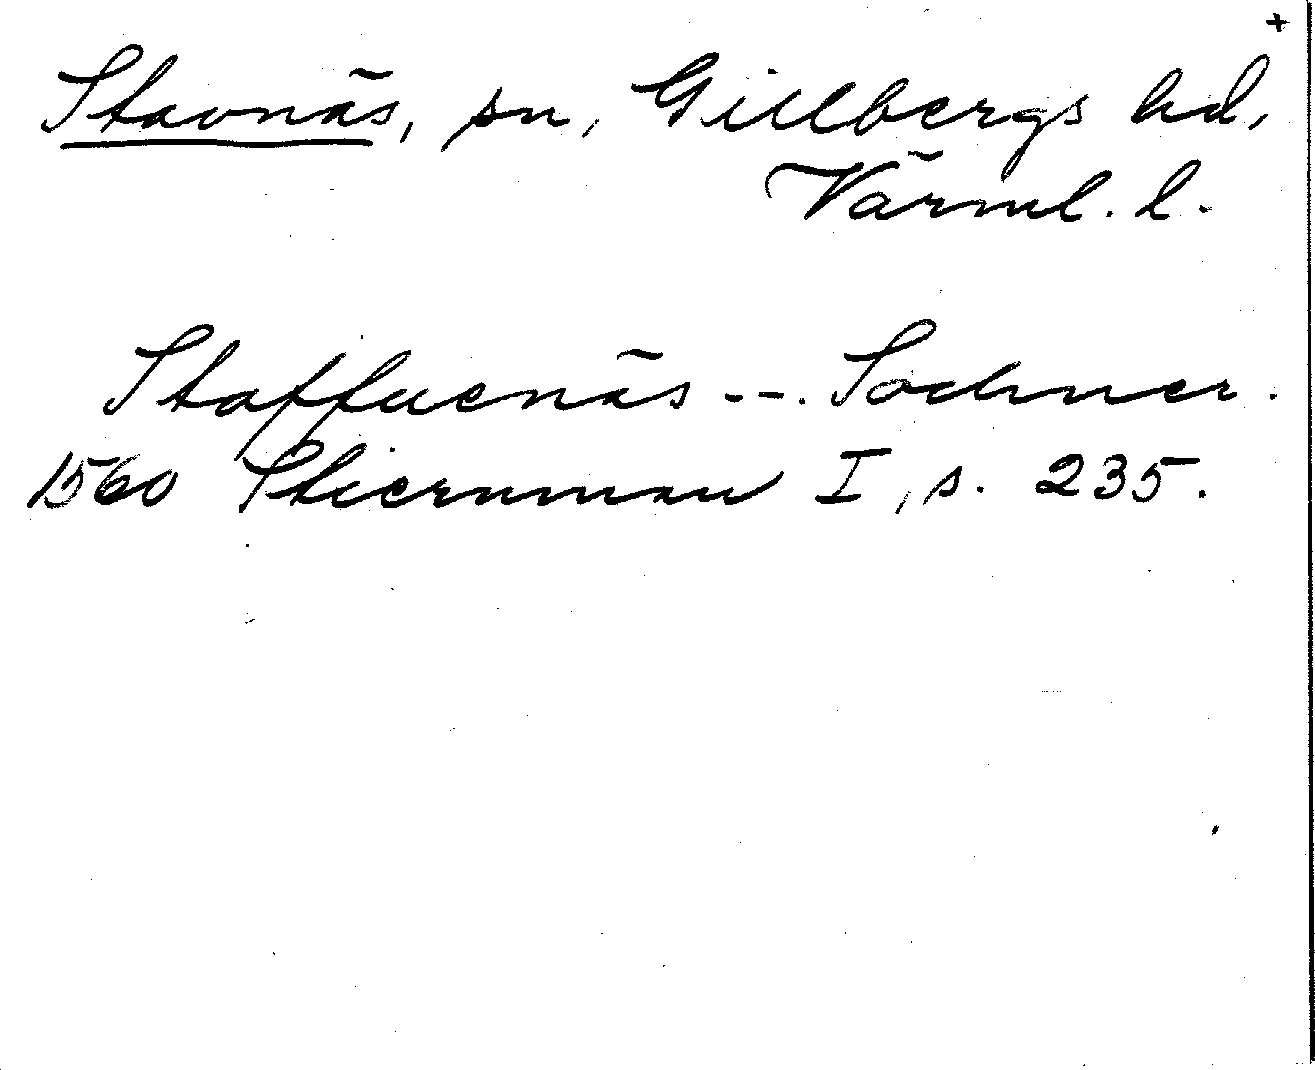 +
Stavnäs, sn, Gillbergs hd,
Värml. l.
Staffuenäs --. Sochner.
1560 Stiernman I, s. 235.